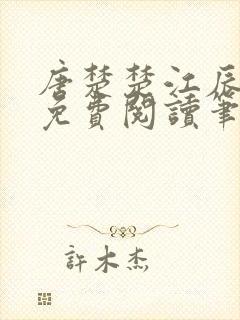 唐楚楚江辰
免費閱讀筆
許木杰